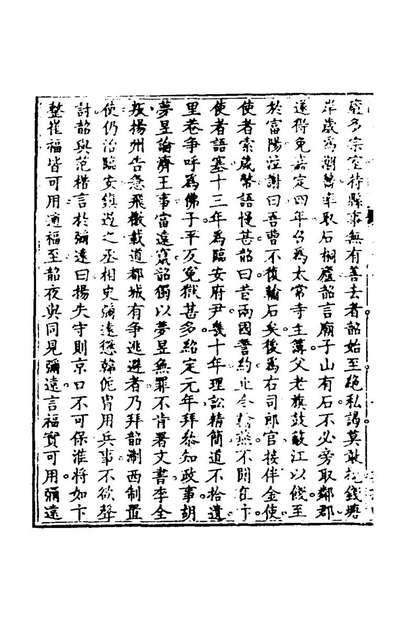 庭多宗室待縣事無有善去者韶始至絶私謁莫敢扰錢塘
岸歲為潮齧率取石桐廬韶言廟子山有石不必旁取鄰郡
遂得免嘉定四年召為太常寺主簿父老旗鼓蔽江以餞至
於富陽泣謝曰吾曹不復輸石矣後為右司郎官接伴金使
使者索歲幣語慢甚韶曰昔兩國誓約止令輸燕不聞在于
使者語塞十三年為臨安府尹幾十年理訟精簡道不拾遺
里巷争呼為佛子平反寃獄甚多紹定元年拜叅知政事胡
夢昱論濟王事當遠竄韶獨以夢昱無罪不肯署文書李全
叛揚州告急飛檄載道都城有争逃避者乃拜韶浙西制置
使仍治臨安鎮遏之丞相史彌遠懲韓侂胄用兵事不欲聲
討韶與范楷言於彌遠曰揚失守則京口不可保淮將如卞
整崔福皆可用適福至韶夜與同見彌遠言福實可用彌遠